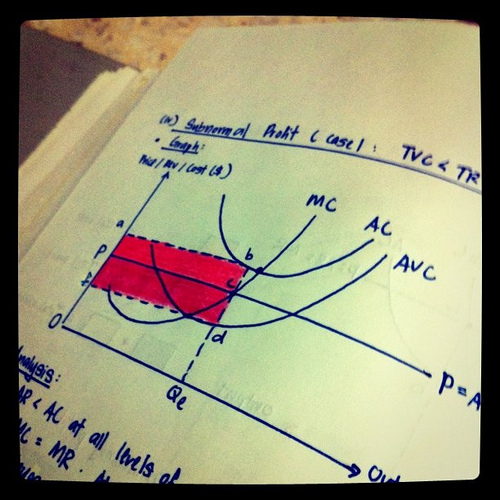 Subnormal Profit (case 1: TVC < TR
• Graph:
Price/ Rev/ Cost ($)
MC
AC
AVC
a
b
P
c
f
d
O
Qe
P = A
nalysis:
AR < AC at all levels of
MC = MR.